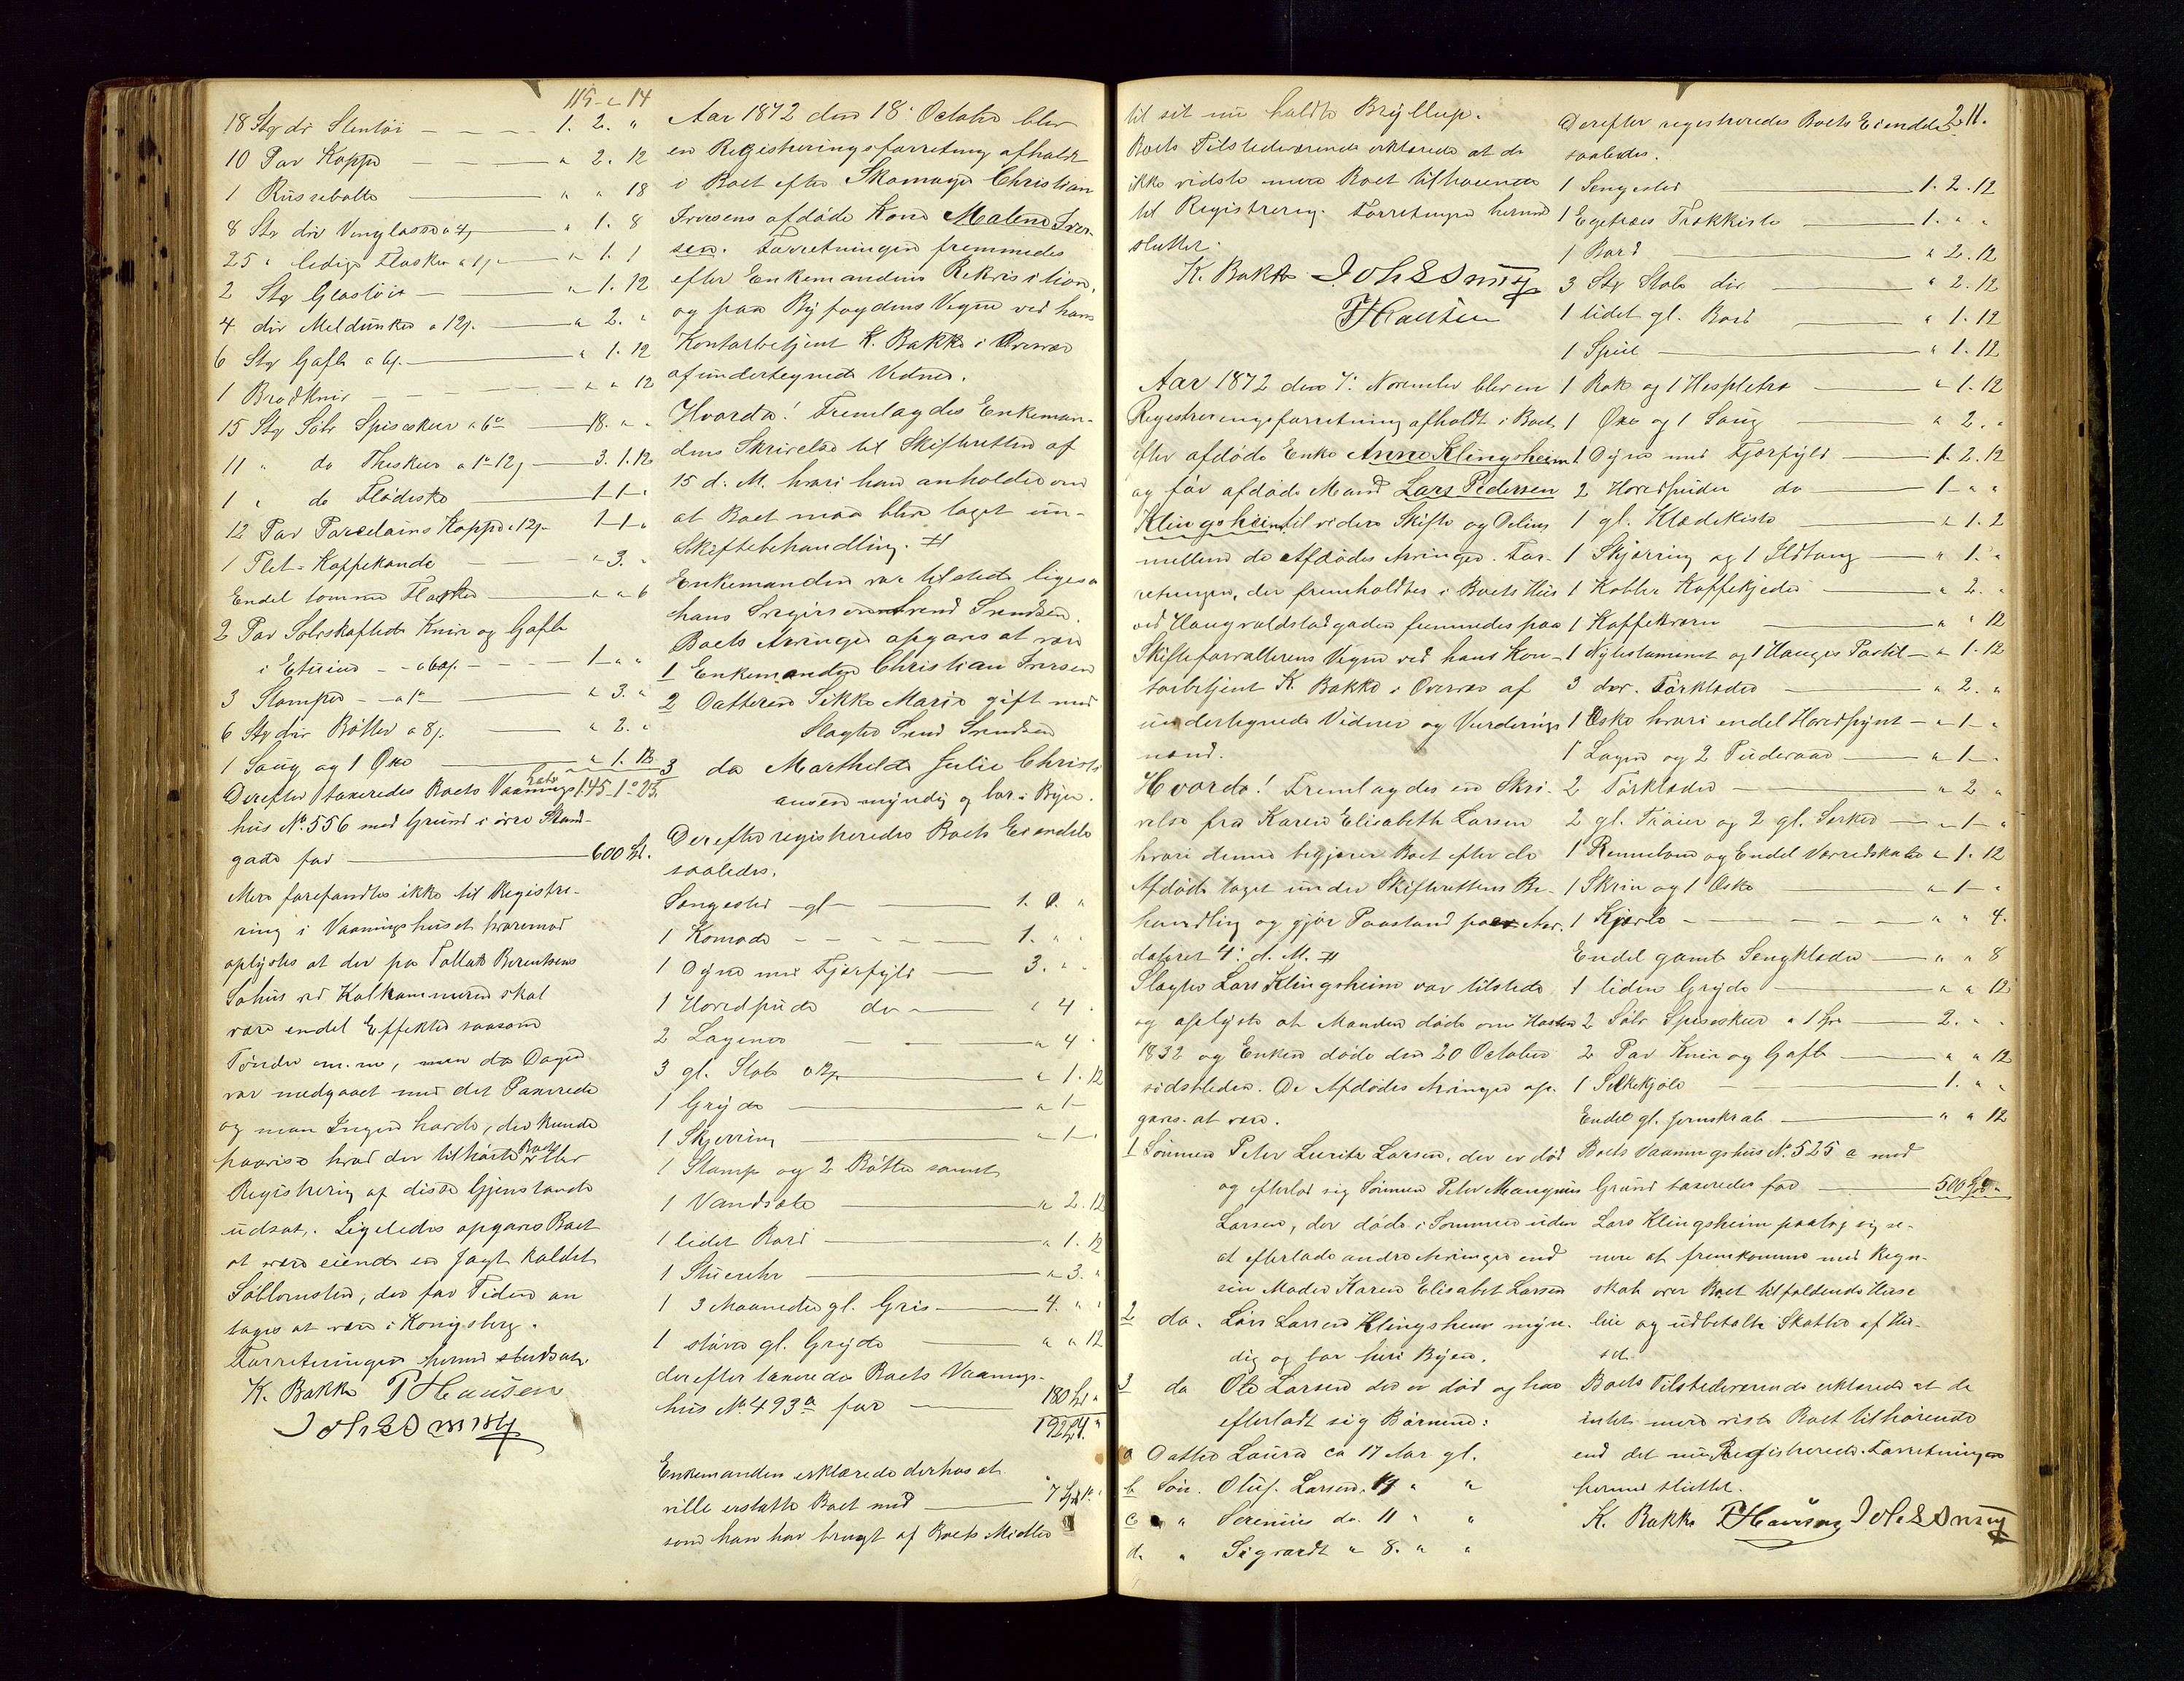 115 - 14
18 Stkr dir Stentöi — 1. 2. "
10 Par Koppe — " 2. 12
1 Russebolle — " " 18
8 Stkr dir Vinglasse a 4 — " 1. 8
25 " ledige Flasker a 1 — " 1. 1
2 Stkr Glastöi — " 1. 12
4 dir Meldunke a 12 — " 2. "
6 Stkr Gafle a 6 — " 1. 12
1 Brødkniv — " " 12
15 Stkr Sölv Spiseskeer a 6 — 18. " "
11 " do Theskeer a 1 - 12 — 3. 1. 12
1 " do Flödeske — 1 - 1 - "
12 Par Porcelains Koppe a 12 — 1 - 1 "
1 Plet-Kaffekande — " 3. "
Endel tomme Flasker — " " 6
2 Par Sölvskaftede Knive og Gafle
i Etuier — 1 - " "
3 Stamper — a 1 — " 3. "
6 Stkr dir Bötter a 8 — " 2. "
1 Saug og 1 Öxe — " 1. 12
Derefter taxeredes Boets Vaanings 145 - 1 - 23
hus No. 556 med Grund i övre Strand-
gade for — 600 Spd.
Mere forefandtes ikke til Registre-
ring i Vaaningshuset hvorimod
oplystes at der paa Tollak Berentsens
Söhus ved Kalhammeren skal
være endel Effekter saasom
Tönder m. m., men da Dagen
var medgaaet med det Passerede
og man Ingen havde, der kunde
paavise hvad der tilhörte Boet blev
Registrering af disse Gjenstande
udsat. Ligeledes opgaves Boet
at være eiende en Jagt kaldet
Söblomsten, der for Tiden an
tages at være i Kongsberg.
Forretningen hermed sluttet.
K. Bakke P Hausen
Joh S Smith
Aar 1872 den 18 October blev
en Registreringsforretning afholdt
i Boet efter Skomager Christian
Iversens afdöde Kone Malene Iver-
sen. Forretningen fremmedes
efter Enkemandens Rekvisition,
og paa Byfogdens Vegne ved hans
Kontorbetjent K. Bakke i Overvær
af undertegnede Vidner.
Hvorda! Fremlagdes Enkeman-
dens Skrivelse til Skifteretten af
15 d. M. hvori han anholder om
at Boet maa blive taget un-
Skiftebehandling. #
Enkemanden var tilstede ligesa
hans Svigersön Svend Svendsen.
Boets Arvinger opgaves at være
1 Enkemanden Christian Iversen
2 Datteren Sikke Marie gift med
Slagter Svend Svendsen
3 do Marthilde Julie Christi
ansen myndig og bor i Byen.
Derefter registreredes Boets Eiendele
saaledes.
Sengested gl — 1. 0. "
1 Komode — 1. " "
1 Dyne med Fjærfyld — 3. " "
1 Hovedpude do — " 4 "
2 Lagener — " 4 "
3 gl. Stole a 12 — " 1. 12
1 Gryde — " 1 -
1 Skjerring — " 1 - "
1 Stamp og 2 Bötter samt
1 Vandsele — " 2. 12
1 lidet Bord — " 1. 12
1 Stueuhr — " 3. "
1 3 Maaneder gl. Gris — 4. " "
1 större gl. Gryde — " " 12
derefter taxeredes Boets Vaanings-
hus No. 493 a for — 180 Spd "
192 24 "
Enkemanden erklærede derhos at
ville erstatte Boet med — 7 Spd 1 "
som han har brugt af Boets Midler
til sit nu holdte Bryllup.
Boets Tilstedeværende erklærede at de
ikke vidste mere Boet tilhörende
til Registrering. Forretningen hermed
sluttet.
K. Bakke Joh S Smith
P Hausen
Aar 1872 den 7. November blev en
Registreringsforretning afholdt i Boet
efter afdöde Enke Anne Klingsheim
og för afdöde Mand Lars Pedersen
Klingsheim til videre Skifte og Deling
mellem de Afdödes Arvinger. For-
retningen, der fremholdtes i Boets Hus
ved Haugvoldstadgaden fremmedes paa
Skifteforvalterens Vegne ved hans Kon-
torbetjent K. Bakke i Overvær af
undertegnede Vidner og Vurderings
mænd.
Hvorda! Fremlagdes en Skri-
velse fra Karen Elisabeth Larsen
hvori denne begjærer Boet efter de
Afdöde taget under Skifterettens Be-
handling og gjör Paastand paa Arv.
dateret 4. d. M. #
Slagter Lars Klingsheim var tilstede
og oplyste at Manden döde om Hösten
1832 og Enken döde den 20 October
sidstleden. De Afdödes Arvinger op-
gaves at være.
1 Sönnen Peter Lurits Larsen, der er död
og efterlod sig Sönnen Peter Mangnus
Larsen, der döde i Sommer uden
at efterlade andre Arvinger end
sin Moder Karen Elisabet Larsen
2 do. Lars Larsen Klingsheim myn-
dig og bor her i Byen.
3 do Ole Larsen der er död og har
efterladt sig Börnene:
a Datter Laura ca 17 Aar gl.
b Sön Oluf Larsen, " "
c " Serenius do. 11 " "
d. " Sigvardt " 8. " "
211.
Derefter registreredes Boets Eiendele
saaledes.
1 Sengested — 1. 2. 12
1 Egetræes Trækkiste — 1. " "
1 Bord — " 2. 12
3 Stkr Stole dir — " 2. 12
1 lidet gl. Bord — " 1. 12
1 Speil — " 1. 12
1 Rok og 1 Hespletræ — " 1. 12
1 Öxe og 1 Saug — " 2. "
1 Dyne med Fjærfyld — 1. 2. 12
2 Hovedpuder do — 1 - " "
1 gl. Klædekiste — " 1. 2
1 Skjærring og 1 Ildtang — " 1. "
1 Kobber Kaffekjedel — " 2. "
1 Kaffekværn — " " 12
1 Nytestament og 1 Hauges Postil — " 1. 12
3 dir. Törklæder — " 2. "
1 Æske hvori endel Hovedpynt — " 1 - "
1 Lagen og 2 Pudevaar — " 1 -
2 Törklæder — " 2 "
2 gl. Tröier og 2 gl. Særker — " 1 - "
1 Rennebom og Endel Væveredskaber " 1. 12
1 Skrin og 1 Æske — " 1 - "
1 Kjærle — " " 4.
Endel gamle Sengklæder — " " 8
1 liden Gryde — " " 12
2 Sölv Spiseskeer a 1 Spd — 2. " "
2 Par Knive og Gafle — " " 12
1 Silkekjole — 1. " "
Endel gl. Jernskrab — " " 12
Boets Vaaningshus No. 525 a med
Grund taxeredes for — 500 Spd "
Lars Klingsheim paatog sig se-
nere at fremkomme med Regn-
skab over Boet tilfaldende Huse
leie og udbetalte Skatter af Hu-
set.
Boets Tilstedeværende erklærede at de
intet mere viste Boet tilhörende
end det nu Registrerede. Forretningen
hermed sluttet.
K. Bakke P Hausen Joh S Smith